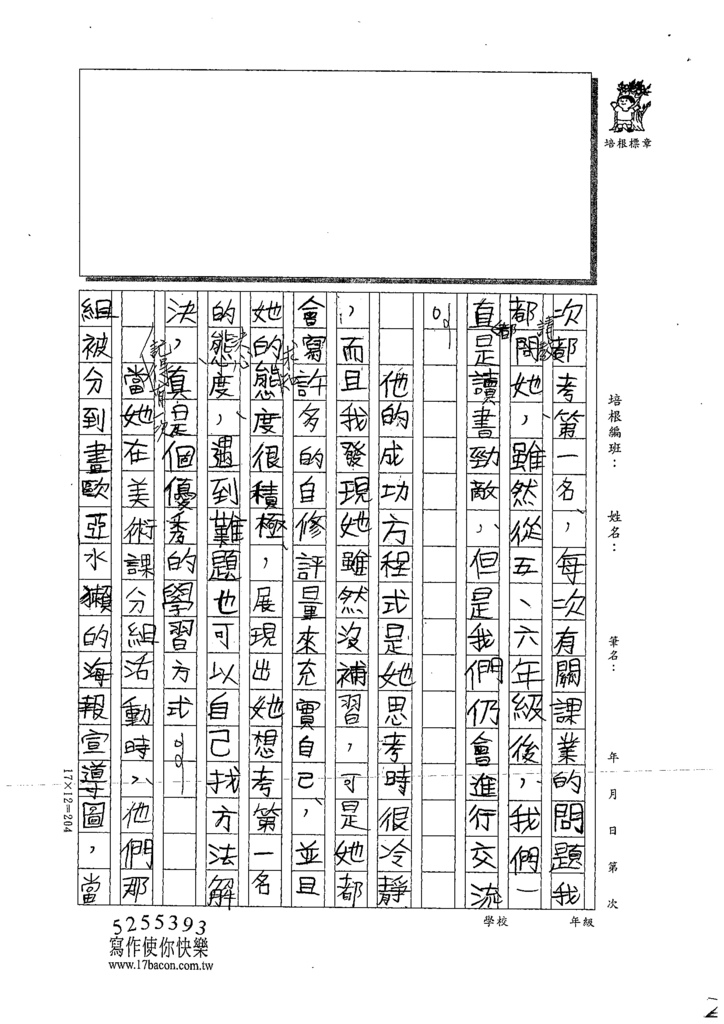 培根標章
培根編班：
姓名：
筆名：
年 月 日 第 次
學校
年級
次都考第一名，每次有關課業的問題我
都問她，雖然從五、六年級後，我們一
請教
直是讀書勁敵，但是我們仍會進行交流
都
。
他的成功方程式是她思考時很冷靜
，而且我發現她雖然沒補習，可是她都
會寫許多的自修評量來充實自己，並且
她的態度很積極，展現出她想考第一名
求知
的態度，遇到難題也可以自己找方法解
決心
決，真是個優秀的學習方式。
當她在美術課分組活動時，他們那
記得有一次
組被分到畫歐亞水獺的海報宣導圖，當
17×12=204
5255393
寫作使你快樂
www.17bacon.com.tw